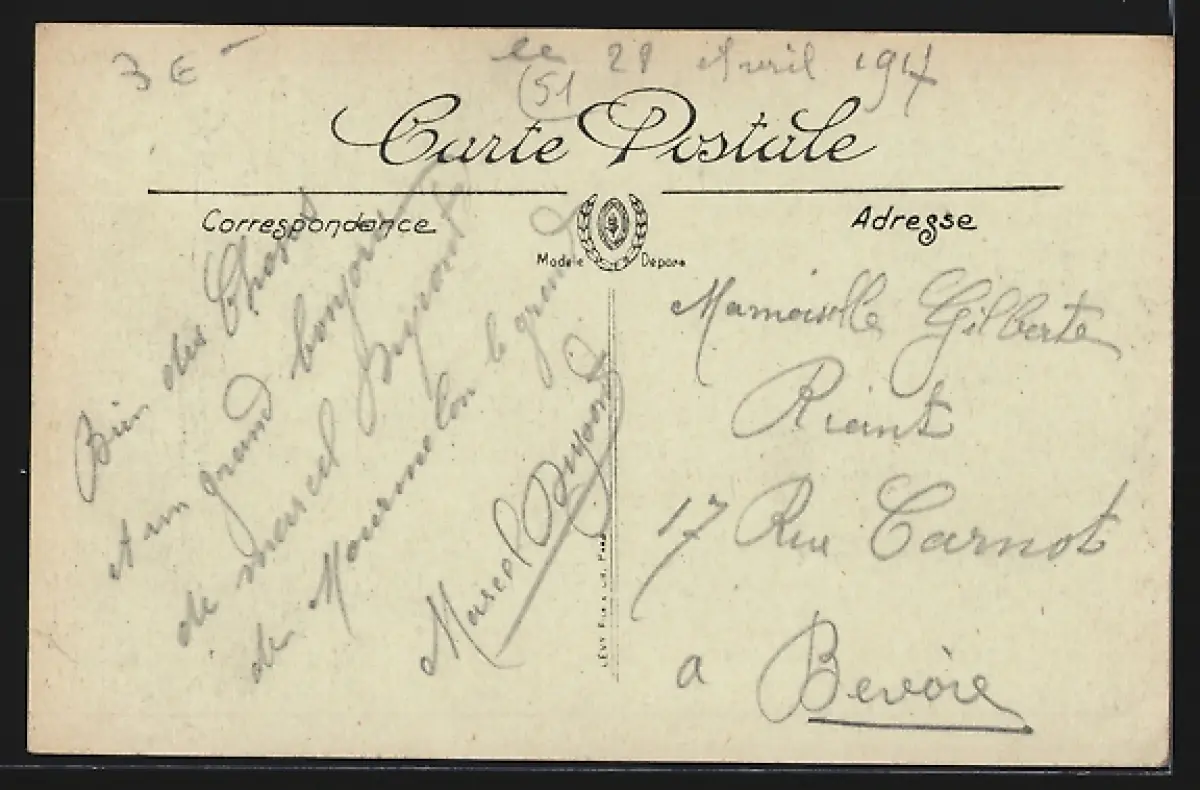 3 €-
le 28 Avril 1917
(51
Carte Postale
Correspondance
Adresse
Modèle Déposé
Bien des Choses
et un grand bonjour
de marcel
de Mourmelon le grand
Marcel
LÉVY Fils & Cie, Paris
Mamoiselle Gilberte
Riant
17 Rue Carnot
a Bevoie